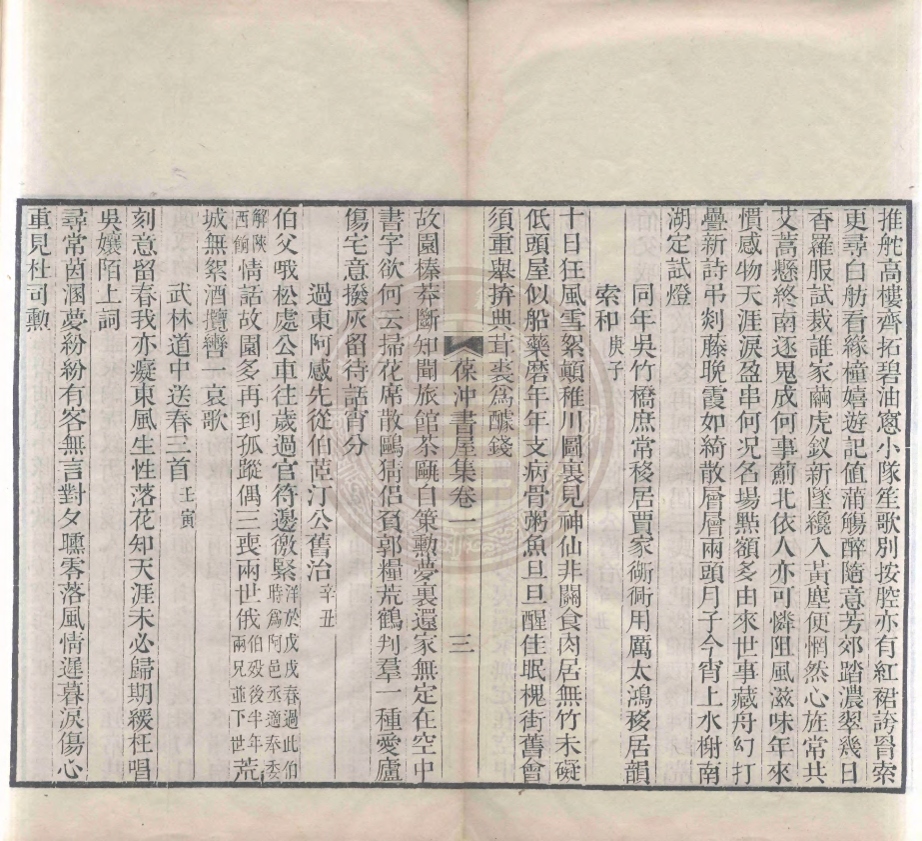 推舵高樓齊拓碧油窻小隊笙歌別按腔亦有紅裙誇腎索
更尋白舫看緣橦嬉遊記值蒲觴醉隨意芳郊踏濃翠幾日
香羅服試裁誰家繭虎釵新墜纔入黃塵便惘然心旌常共
艾蒿懸終南逐鬼成何事薊北依人亦可憐阻風滋味年來
慣感物天涯淚盈串何况名場㸃額多由來世事藏舟幻打
疊新詩弔剡藤晚霞如綺散層層兩頭月子今宵上水榭南
湖定試燈
同年吳竹橋庶常移居賈家衚衕用厲太鴻移居韻
索和庚子
十日狂風雪絮顛稚川圖裏見神仙非關食肉居無竹未礙
低頭屋似船藥曆年年支病骨粥魚旦旦醒佳眠槐街舊會
須重舉拚典茸裘爲醵錢
葆沖書屋集卷一 三
故園榛莽斷知聞旅館茶甌自策勲夢裏還家無定在空中
書字欲何云掃花席散鷗猜侶負郭糧荒鶴判羣一種愛廬
傷宅意撥灰留待話宵分
過東阿感先從伯蒞汀公舊治辛丑
伯父哦松處公車往歲過官符邊徼緊洋於戊戌春過此伯時爲阿邑丞適奉委
解陝西餉情話故園多再到孤蹤偶三喪兩世俄伯歿後半年兩兄並下世荒
城無絮酒攬轡一哀歌
武林道中送春三首壬寅
刻意留春我亦癡東風生性落花知天涯未必歸期緩枉唱
吳孃陌上詞
尋常茵溷夢紛紛有客無言對夕曛零落風情遲暮淚傷心
重見杜司勲